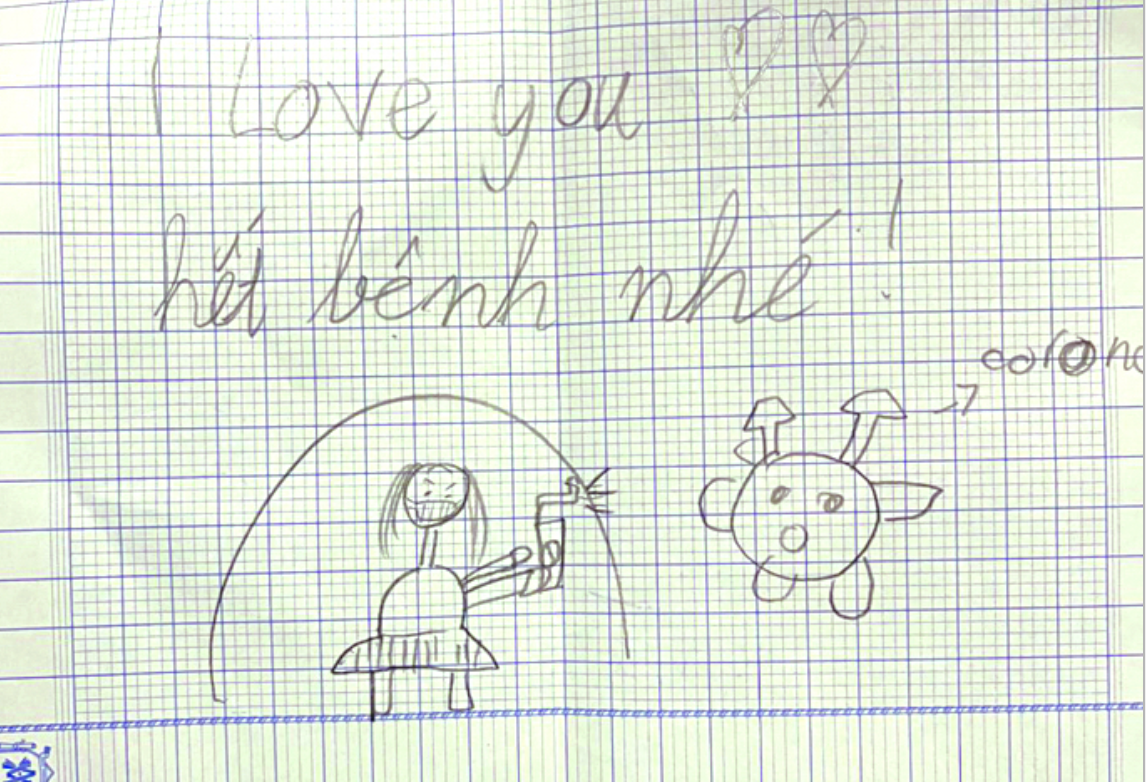 I Love you
hết bệnh nhé!
corona